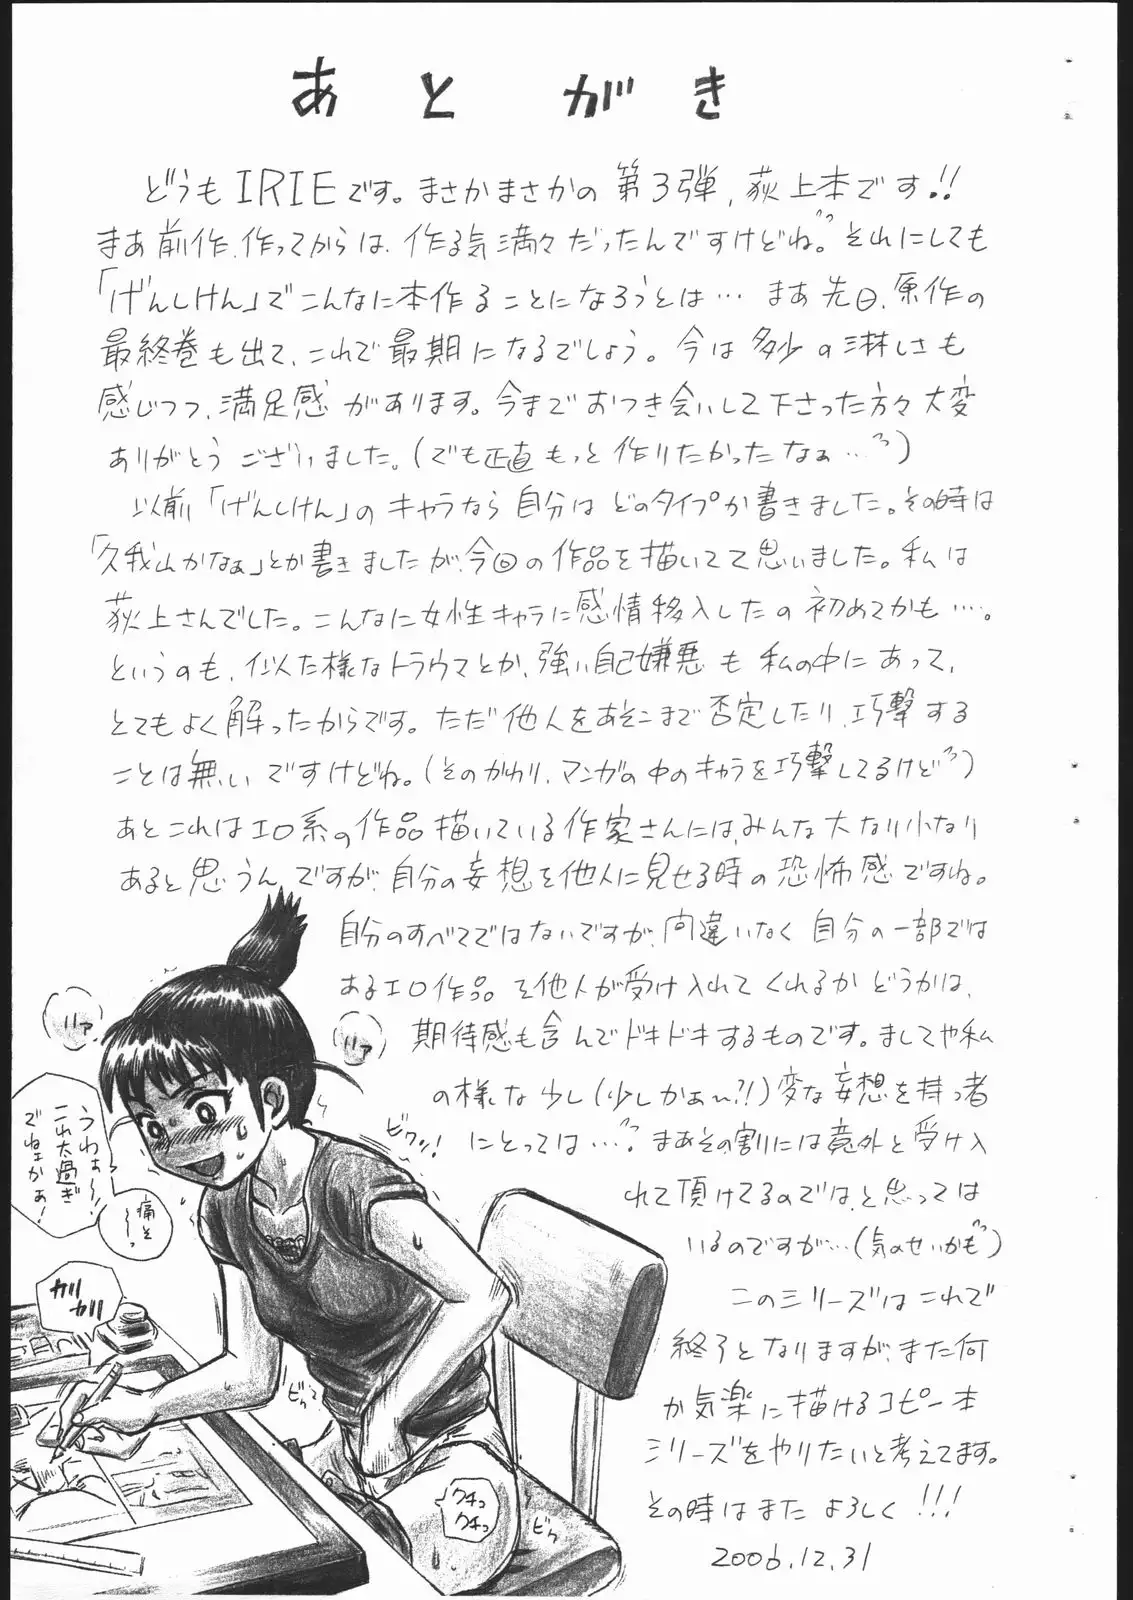 あとがき
どうもIRIEです。まさかまさかの第3弾、荻上本です!!
まあ前作、作ってからは、作る気満々だったんですけどね。それにしても
「げんしけん」でこんなに本作ることになろうとは…まあ先日、原作の
最終巻も出て、これで最期になるでしょう。今は多少の淋しさも
感じつつ、満足感があります。今までおつき会いして下さった方々大変
ありがとうございました。(でも正直もっと作りたかったなぁ…)
以前「げんしけん」のキャラなら自分はどのタイプか書きました。その時は
「久我山かなぁ」とか書きましたが、今回の作品を描いてて思いました。私は
荻上さんでした。こんなに女性キャラに感情移入したの初めてかも…。
というのも、似た様なトラウマとか、強い自己嫌悪も私の中にあって、
とてもよく解ったからです。ただ他人をあそこまで否定したり、巧撃する
ことは無いですけどね。(そのかわり、マンガの中のキャラを巧撃してるけど)
あとこれはエロ系の作品描いている作家さんには、みんな大なり小なり
あると思うんですが、自分の妄想を他人に見せる時の恐怖感ですね。
自分のすべてではないですが、間違いなく自分の一部では
あるエロ作品を他人が受け入れてくれるかどうかは、
期待感も含んでドキドキするものです。ましてや私
の様な少し(少しかぁ〜?!)変な妄想を持つ者
にとっては…。まあその割には意外と受け入
れて頂けてるのではと思っては
いるのですが…(気のせいかも)
このシリーズはこれで
終了となりますが、また何
か気楽に描けるコピー本
シリーズをやりたいと考えてます。
その時はまたよろしく!!!
2006.12.31
ハァ
ハァ
うわぁ〜!
これ太過ぎ
でねェかぁ!
痛そ
〜〜っ
カリ
カリ
ビクッ!
ビクッ
クチュ
クチュッ
ビク